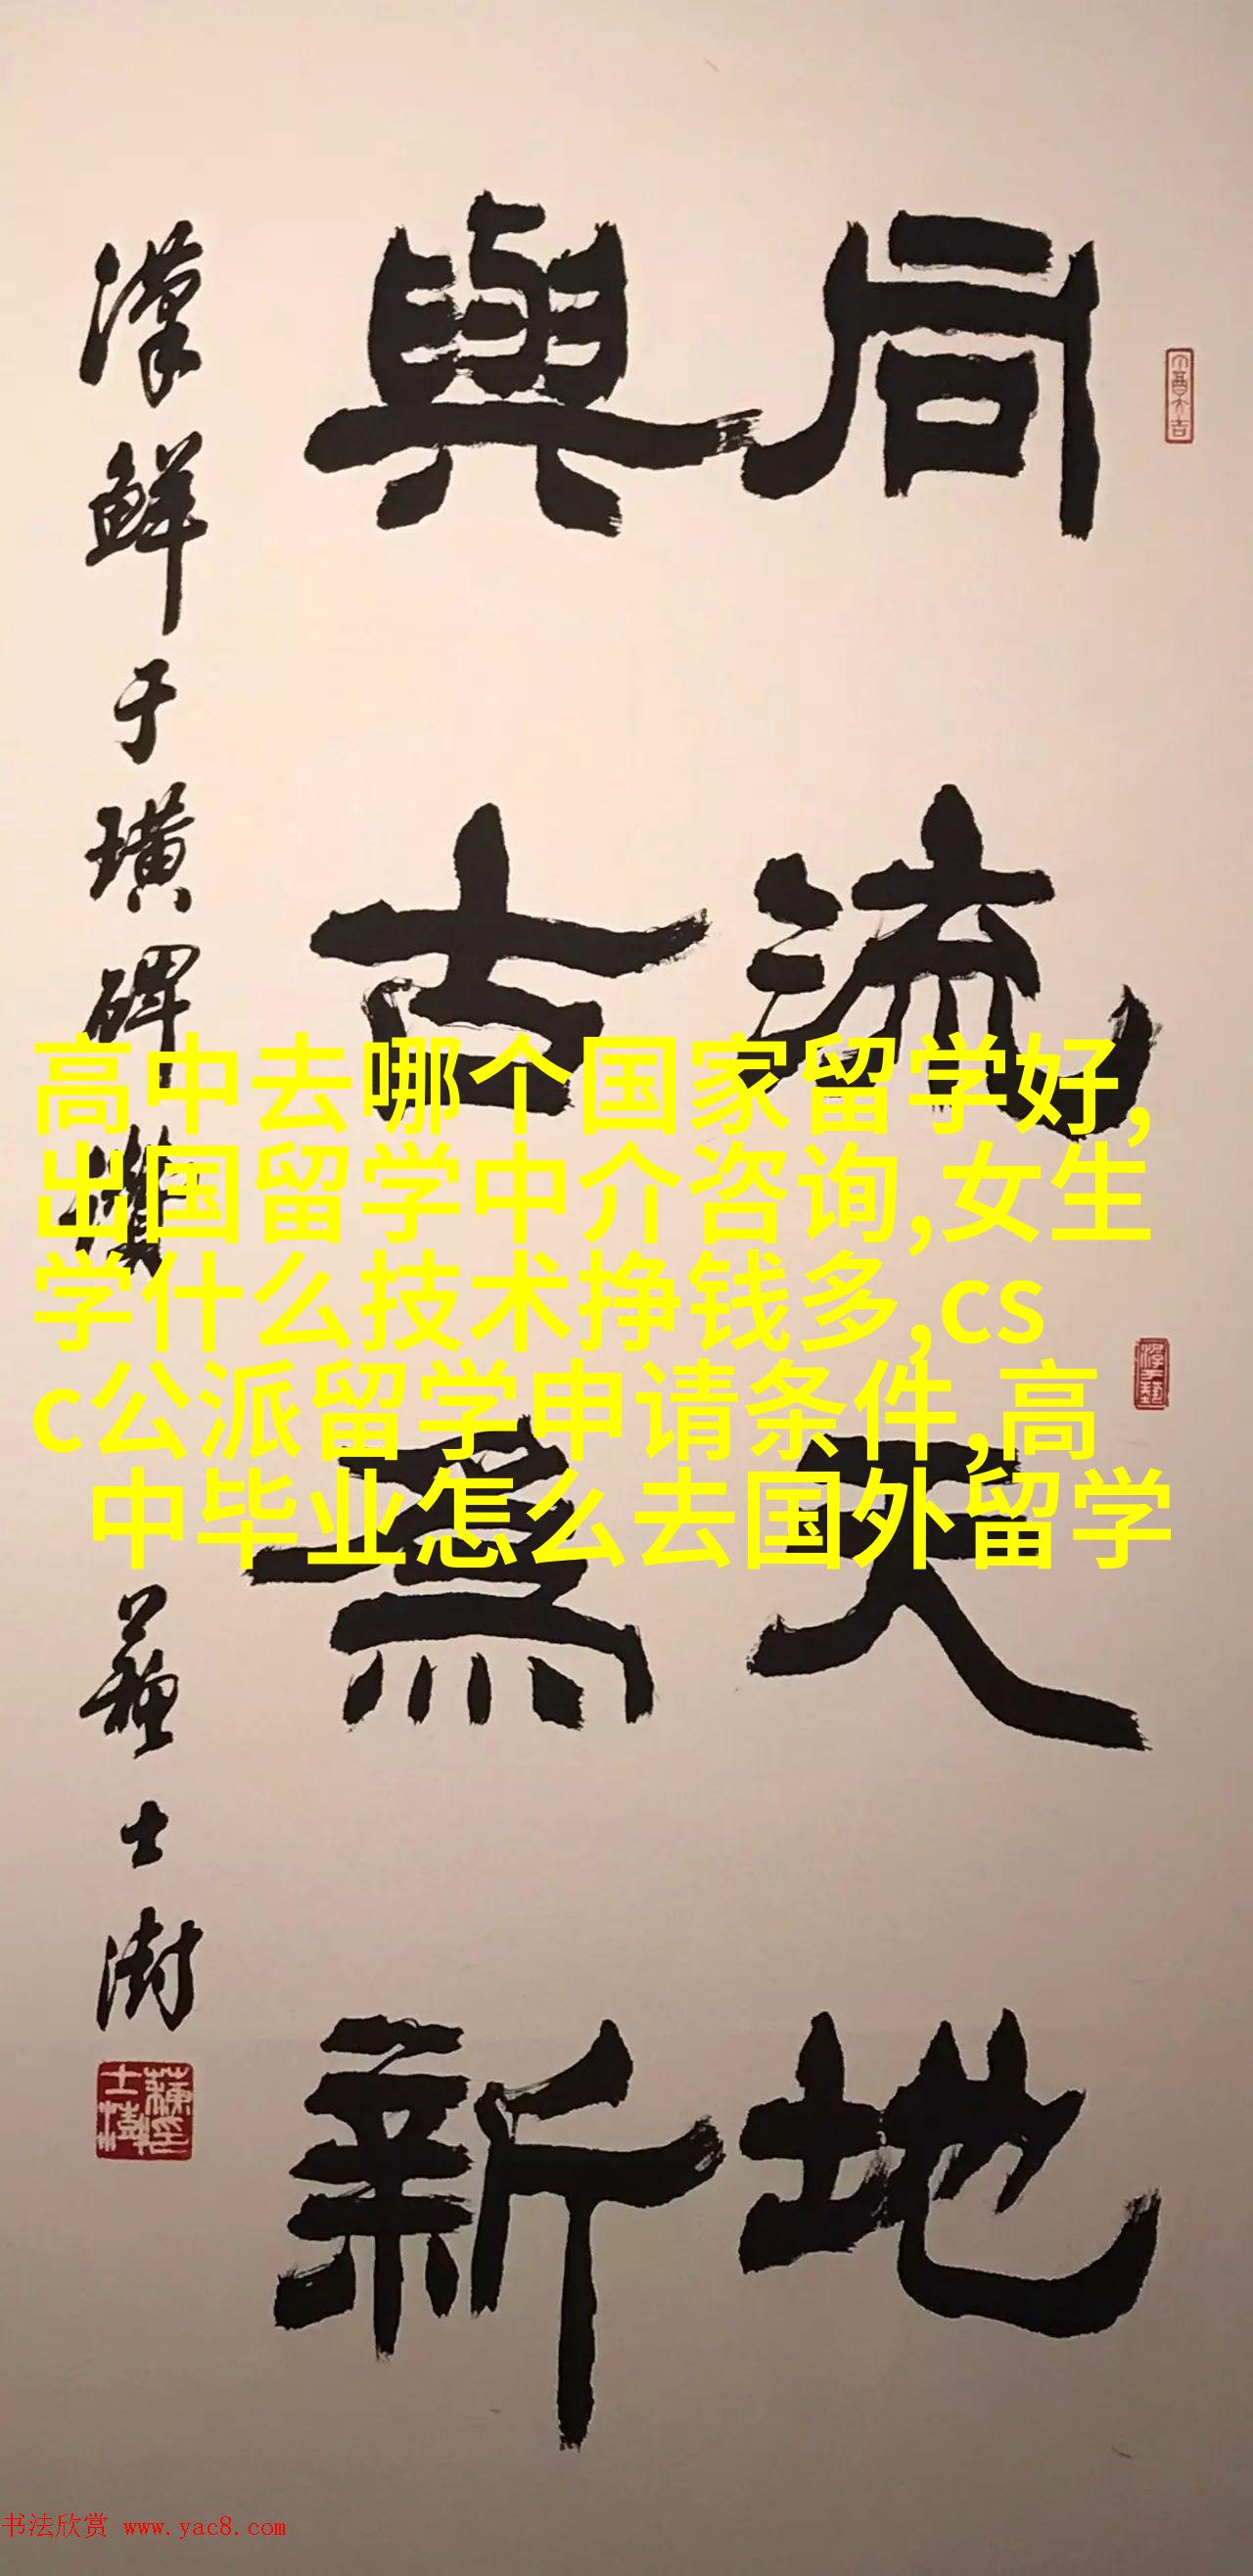 同流天地
與古為新
漢鮮于璜碑
蘇士澍
高中去哪个国家留学好,
出国留学中介咨询,女生
学什么技术挣钱多,cs
c公派留学申请条件,高
中毕业怎么去国外留学
书法欣赏 www.yac8.com